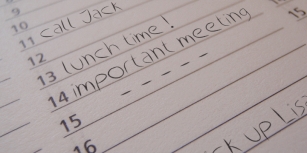 9
10
11 call Jack
12
13 lunch time!
14 important meeting
15 - - - - -
16
15
ck up Lis